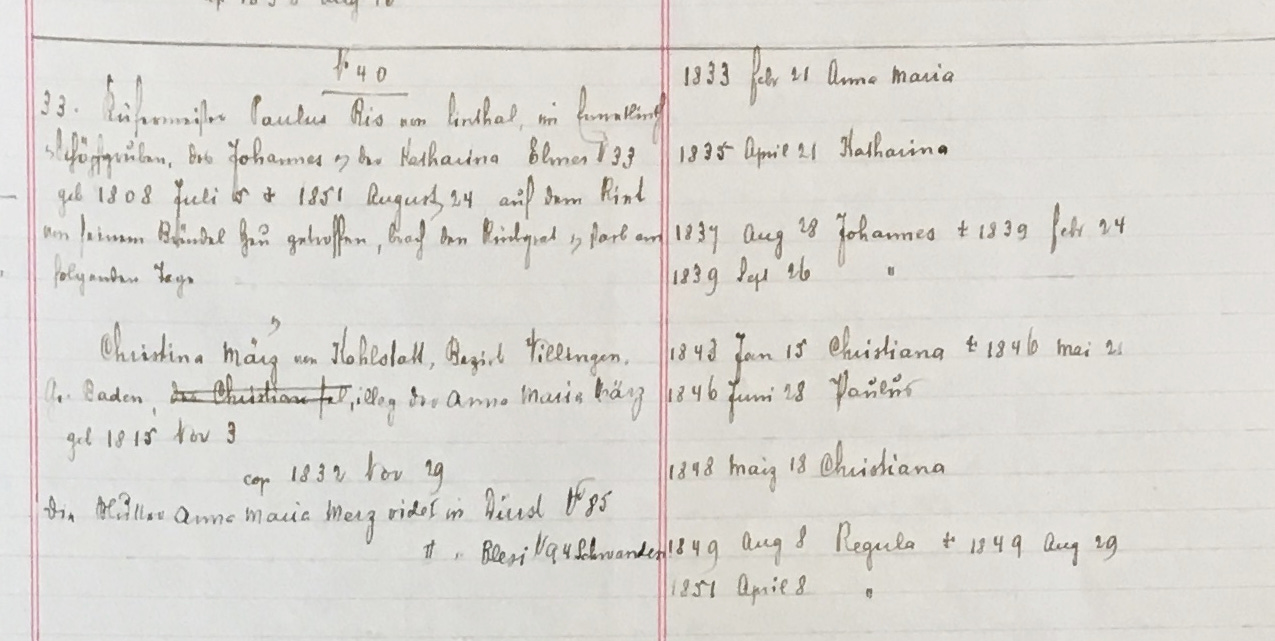 № 40
33. Küfermeister Paulus Ris von Linthal, im
des Johannes u der Katharina Elmer № 33
geb 1808 Juli 5 † 1851 August 24 auf dem
von seinem Bündel Heu getroffen, brach den Rückgrat u starb am
folgenden Tage
u
Christina März von Kohlstatt, Bezirk Villingen.
Gr. Baden, der Christian sel, illeg der Anna Maria März
geb 1815 Nov 3
cop 1832 Nov 29
Die Mutter Anna Maria Merz videt in № 85
" " Blesi № 94 Schwanden
1833 febr 21 Anna Maria
1835 April 21 Katharina
1837 Aug 28 Johannes † 1839 febr 24
1839 Sept 26 "
1843 Jan 15 Christiana † 1846 Mai 21
1846 Juni 28 Paulus
1848 März 18 Christiana
1849 Aug 8 Regula † 1849 Aug 29
1851 April 8 "